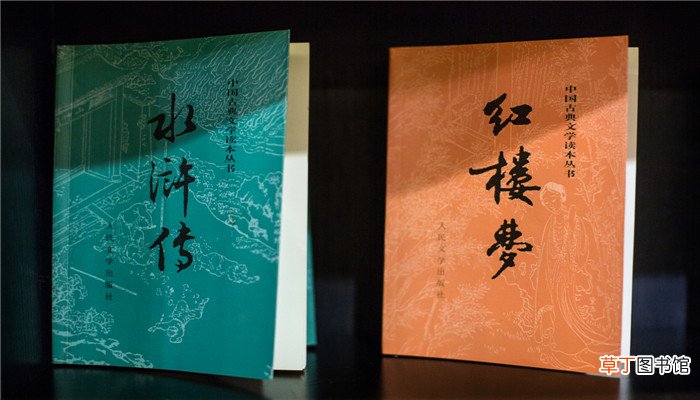 中国古典文学读本丛书
水浒传
人民文学出版社
中国古典文学读本丛书
红楼梦
人民文学出版社
草丁图书馆